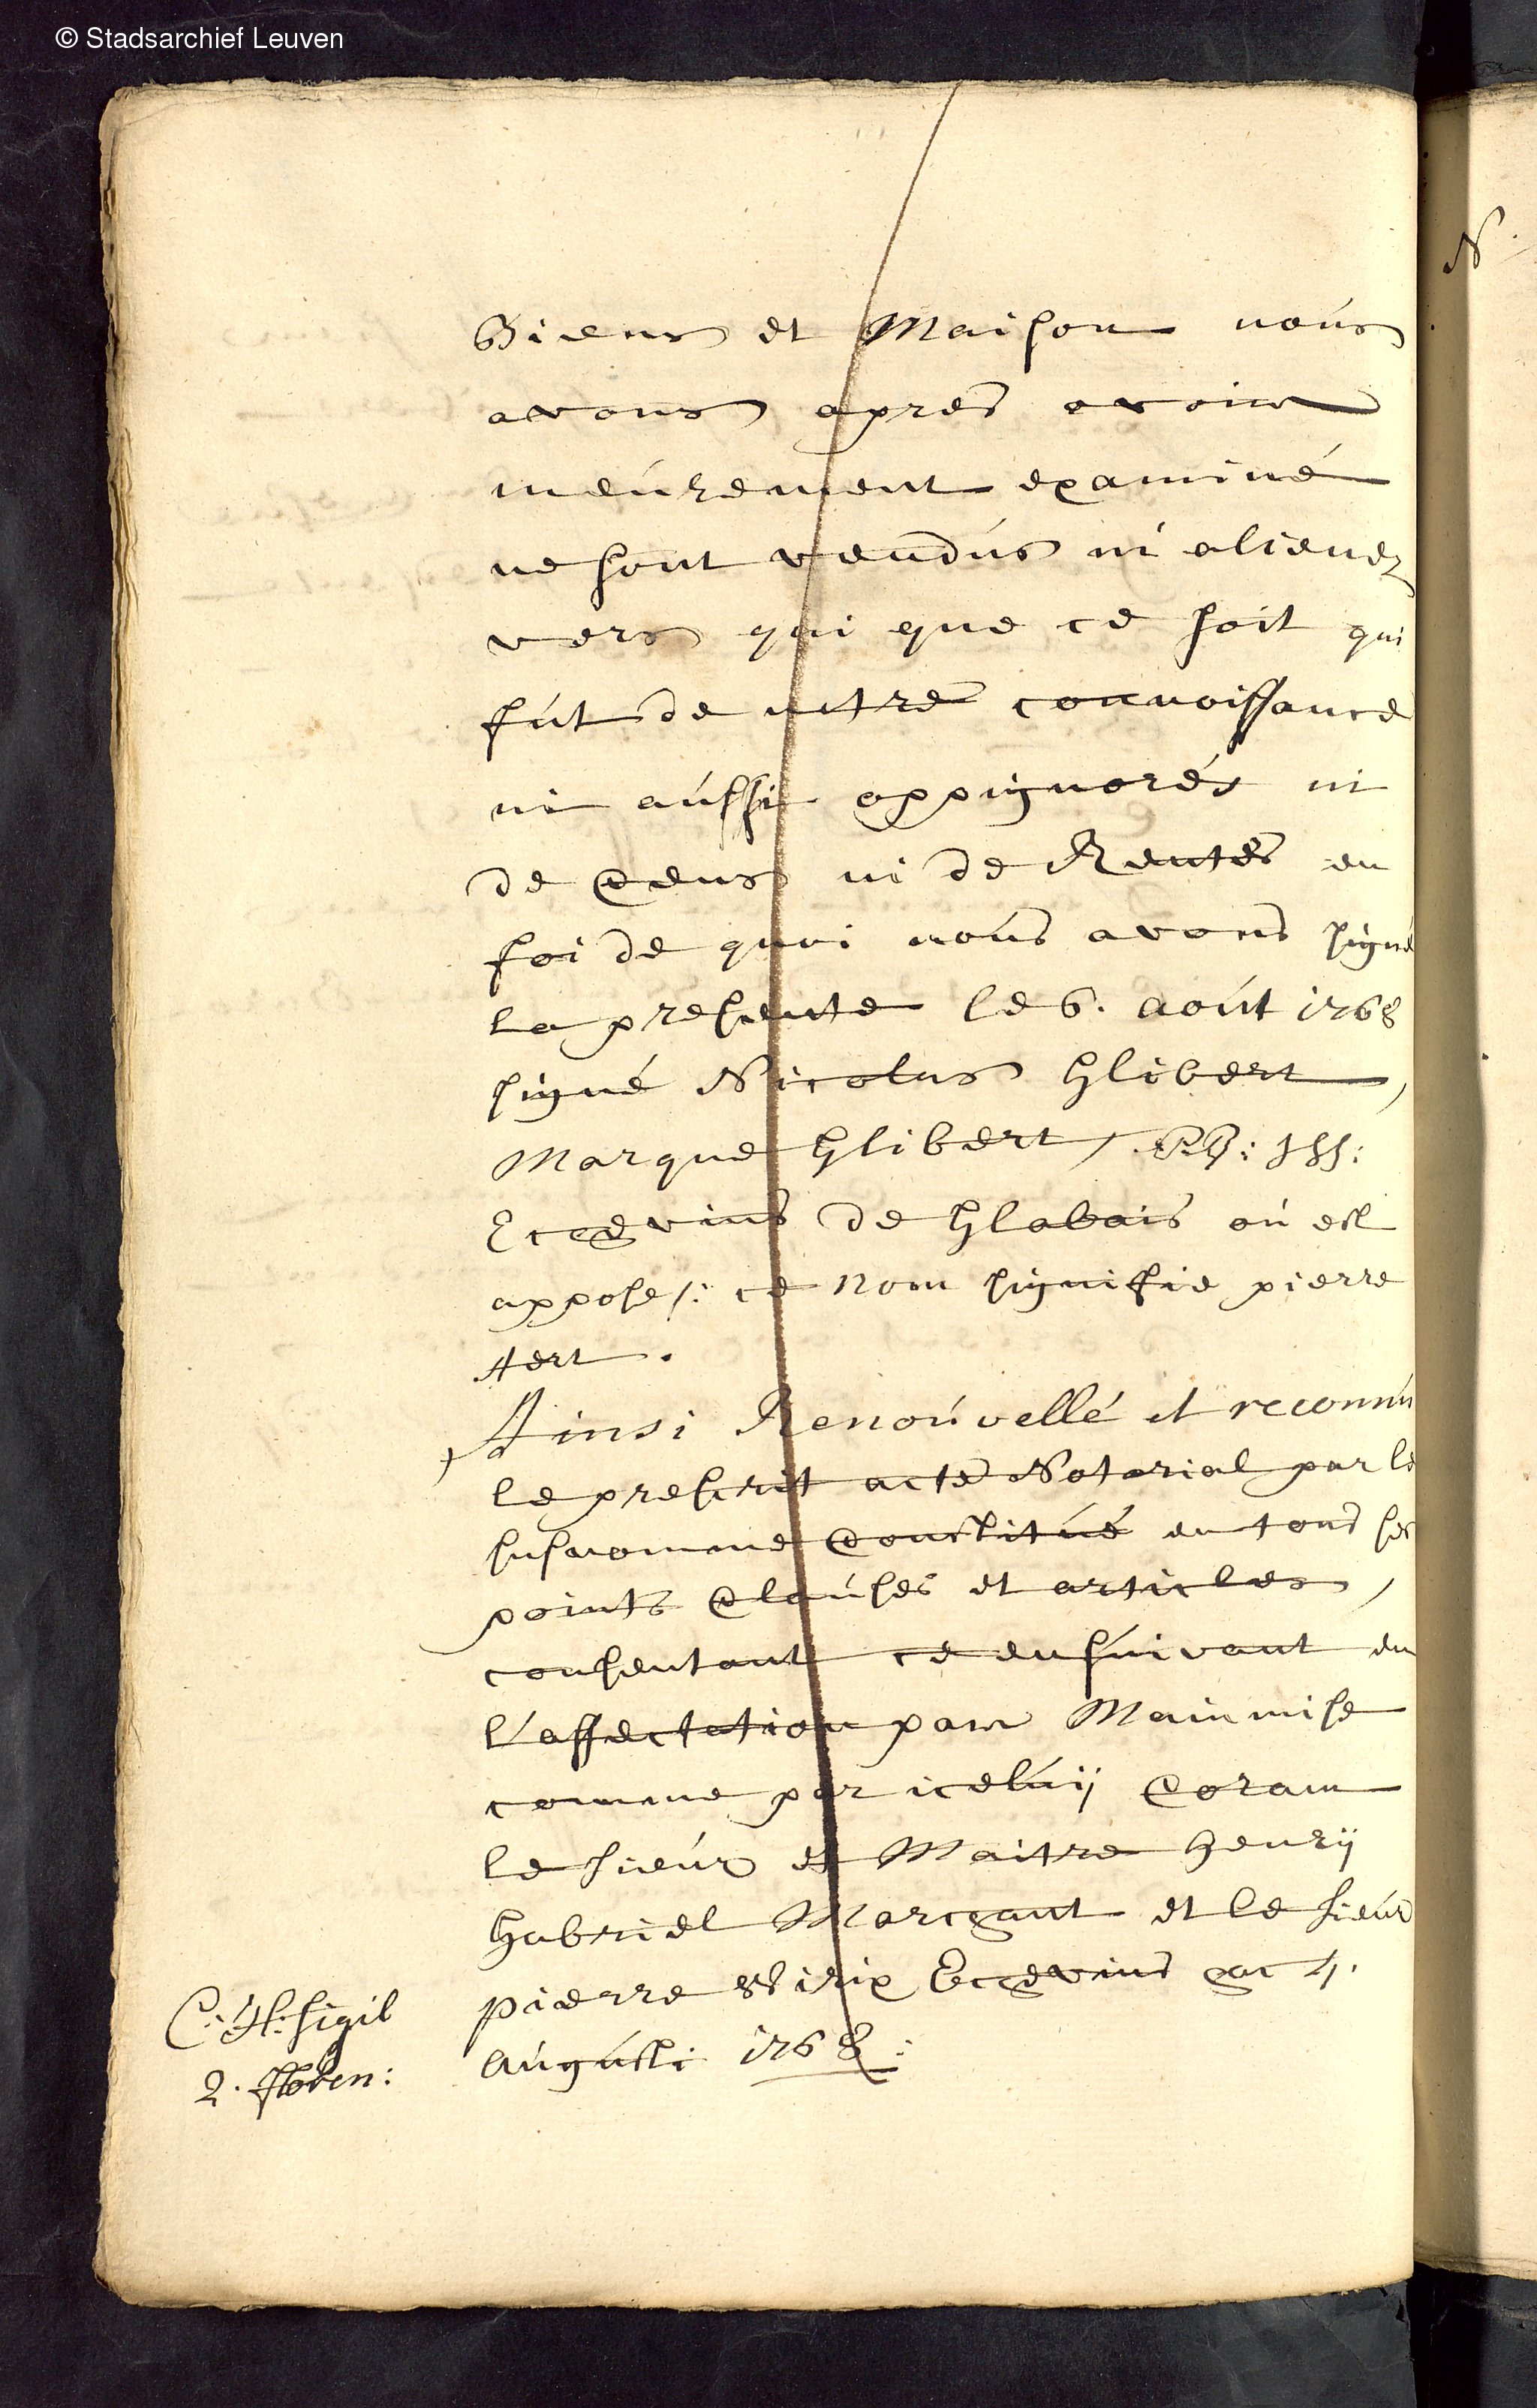 © Stadsarchief Leuven
Biens et Maison noús
avons apres avoir
meúrement examiné
ne sont vendús ni alienez
vers qui que ce soit qui
fút de nttre connoissance
ni aússi oppignorés ni
de Cens ni de Rentes en
foi de quoi noús avons signé
la presente le 6. aoút 1768
signé Nicolas Glibert,
Marque Glibert,
Echevins de Glabais oú est
appose /: ce nom signifie pierre
Hert.
Ainsi Renoúvellé et reconnú
le present acte Notarial par le
susnomme Constitué en tous ses
points Claúses et articles,
consentant ce ensúivant en
l'affectation par Mainmise
comme par icelúij Coram
le sieúr et Maitre henrij
Gabriel Marchant et le sieúr
pierre Wirix Echevins hac 4.
Augústi 1768:
C: H: sigil
2. floren:
N.